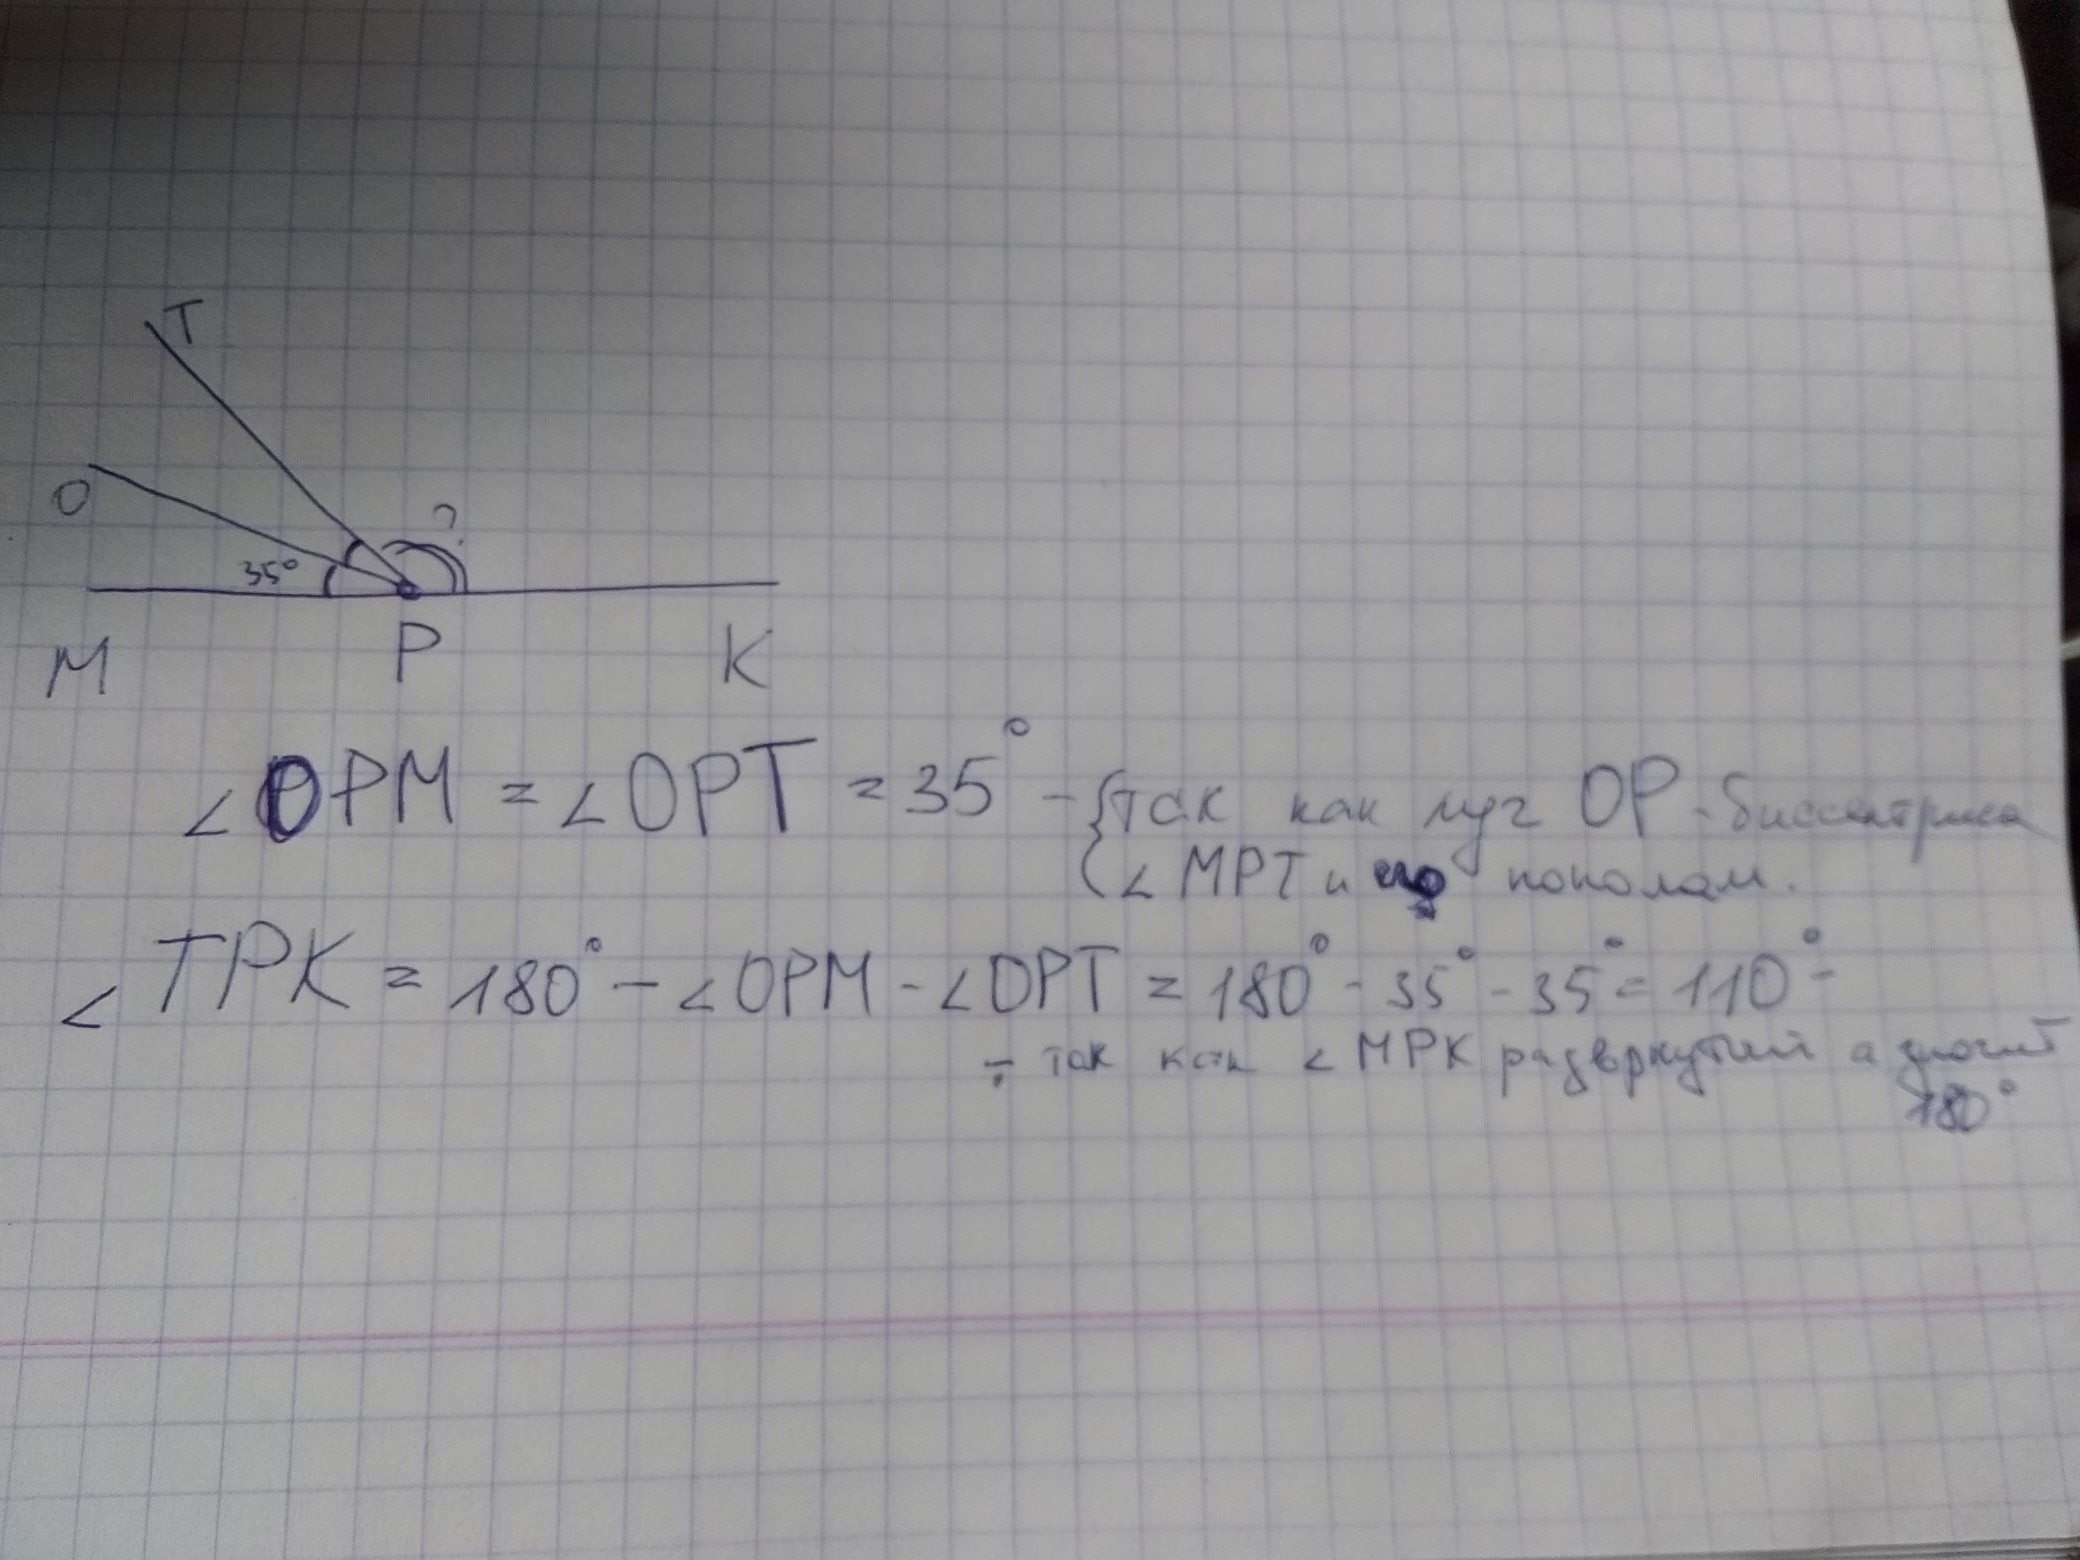 T
O
?
35°
M P K
∠OPM = ∠OPT = 35° - {так как луч OP - биссектриса
∠MPT и пополам.
∠TPK = 180° - ∠OPM - ∠OPT = 180° - 35° - 35° = 110° -
- так как ∠MPK разврнутый а значит
180°